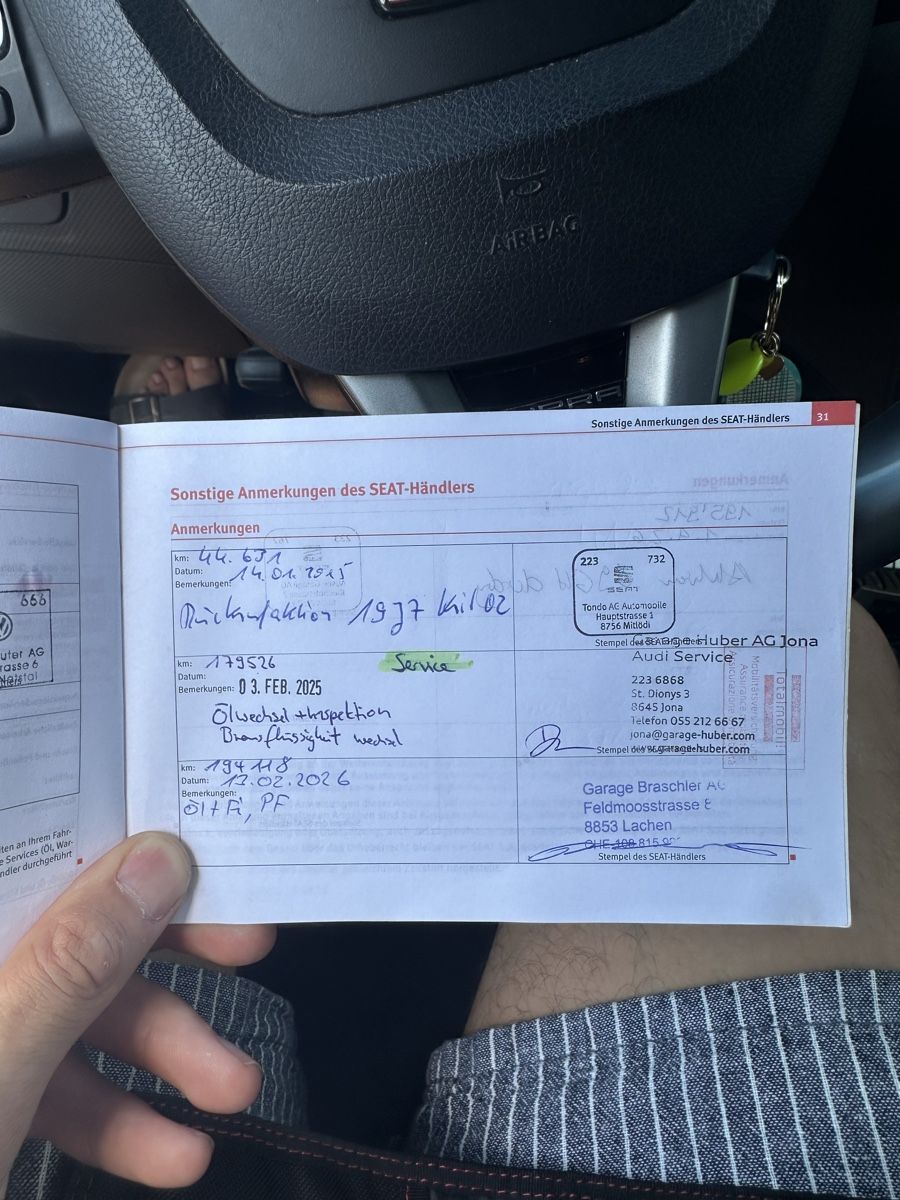 AIRBAG
Sonstige Anmerkungen des SEAT-Händlers 31
Sonstige Anmerkungen des SEAT-Händlers
Anmerkungen
km: 44.631
Datum: 14.01.2015
Bemerkungen:
Rückrufaktion 19J7 Krit 02
223 732
SEAT
Tondo AG Automobile
Hauptstrasse 1
8756 Mitlödi
Stempel des SEAT-Händlers
km: 179526
Service
Datum:
Bemerkungen: 03. FEB. 2025
Ölwechsel + Inspektion
Bremsflüssigkeit wechsel
Garage Huber AG Jona
Audi Service
223 6868
St. Dionys 3
8645 Jona
Telefon 055 212 66 67
jona@garage-huber.com
www.garage-huber.com
Totalmobil!
Mobilitätsversicherung
Assurance
Assicurazione
km: 194118
Datum: 13.02.2026
Bemerkungen:
Öl + Fi, PF
Garage Braschler AG
Feldmoosstrasse
8853 Lachen
CHE 108.815.
Stempel des SEAT-Händlers
666
uter AG
rasse 6
iten an Ihrem Fahr-
e Services (Öl, War-
ndler durchgeführt
195'312